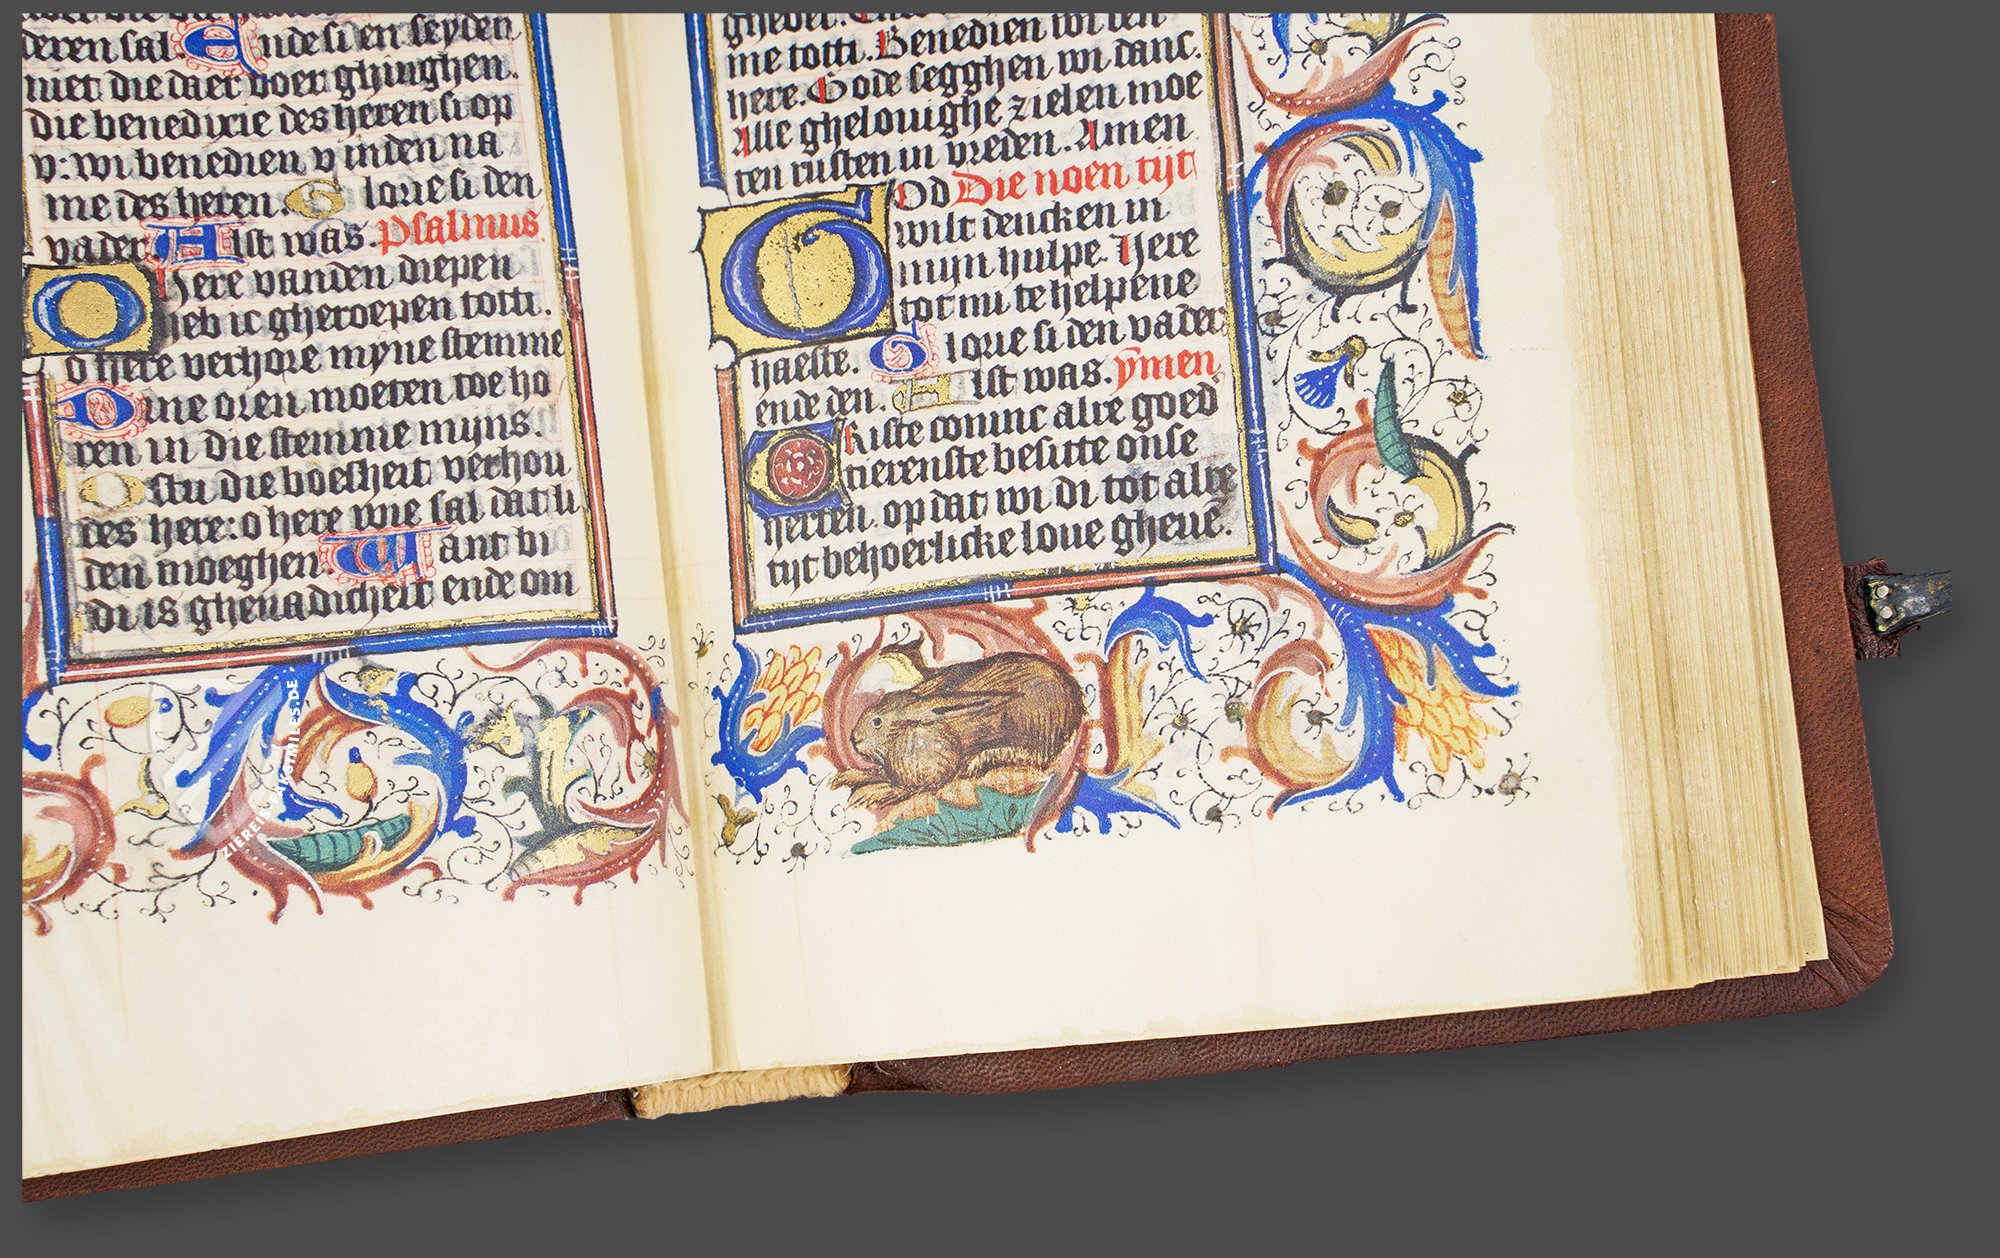 deren sal Ende si en seyden
niet die daer voer ghinghen.
die benedixie des heren si op
v: wi benedien v inden na
me des heren. Glorie si den
vader Alst was. psalmus
Here vanden diepen
heb ic gheroepen totti.
o here verhore myne stemme
Dine oren moeten toe ho
ren in die stemme mijns.
Ostu die boesheit verhou
des here: o here wie sal dat li
den moeghen Want bi
di is ghenadicheit ende om
me totti. Benedien wi den
here. Gode segghen wi danc.
Alle ghelouighe zielen moe
ten rusten in vreden. Amen
God Die noen tijt
wilt dencken in
mijn hulpe. Here
tot mi te helpene
haeste. Glorie si den vader
ende den. Alst was. ymen
Kriste coninc alre goed
tierenste besitte onse
herten. op dat wi di tot alre
tijt behoerlicke loue gheue.
ZIEREIS FAKSIMILES.DE